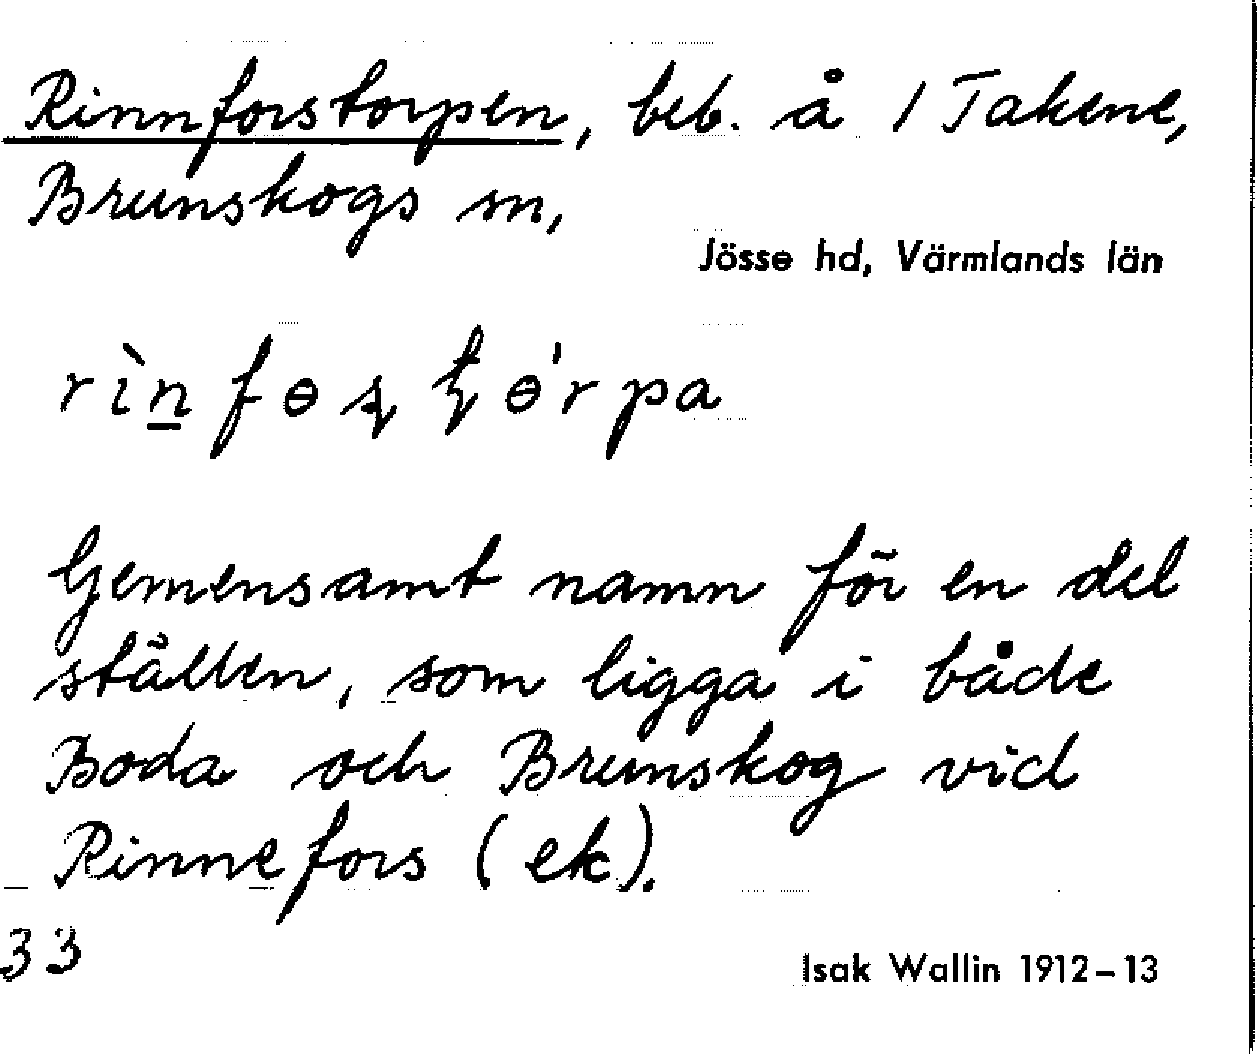 Rinnforstorpen, beb. å 1 Takene,
Brunskogs sn,
Jösse hd, Värmlands län
Gemensamt namn för en del
ställen, som ligga i både
Boda och Brunskog vid
Rinnefors (ek).
33
Isak Wallin 1912–13